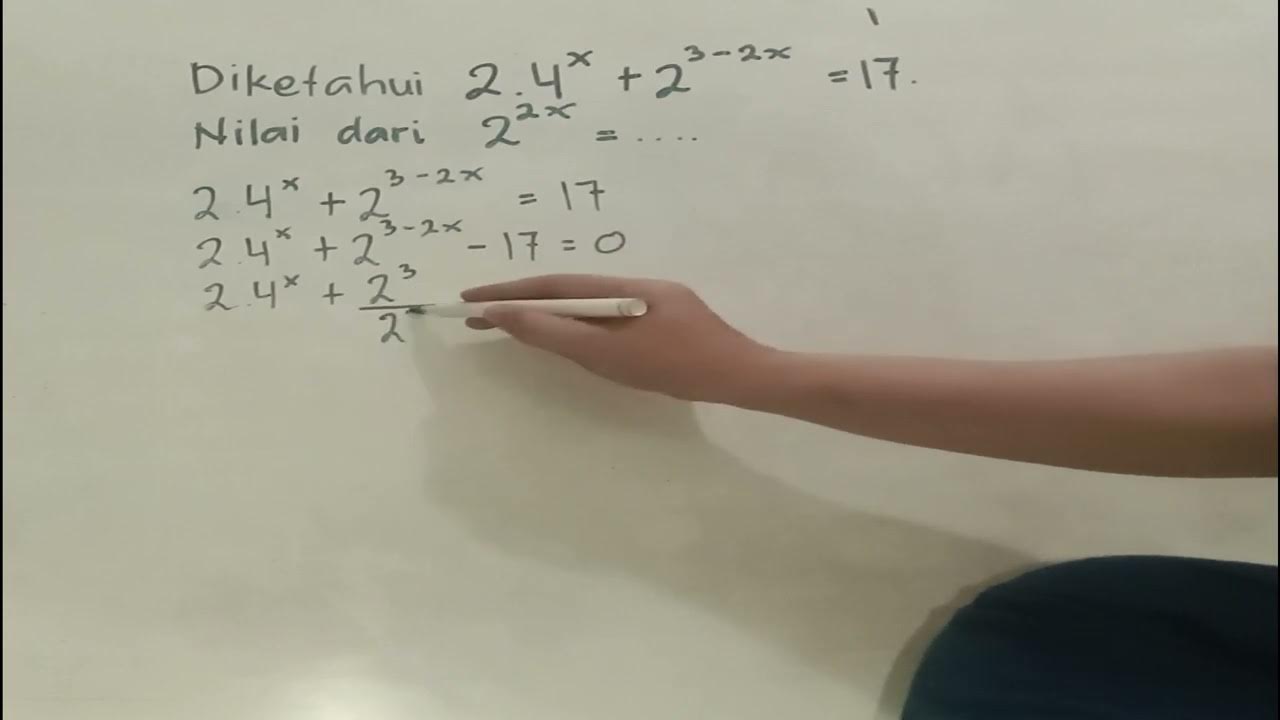 Diketahui 2.4^x + 2^{3-2x} = 17.
Nilai dari 2^{2x} = ....
2.4^x + 2^{3-2x} = 17
2.4^x + 2^{3-2x} - 17 = 0
2.4^x + \frac{2^3}{2}